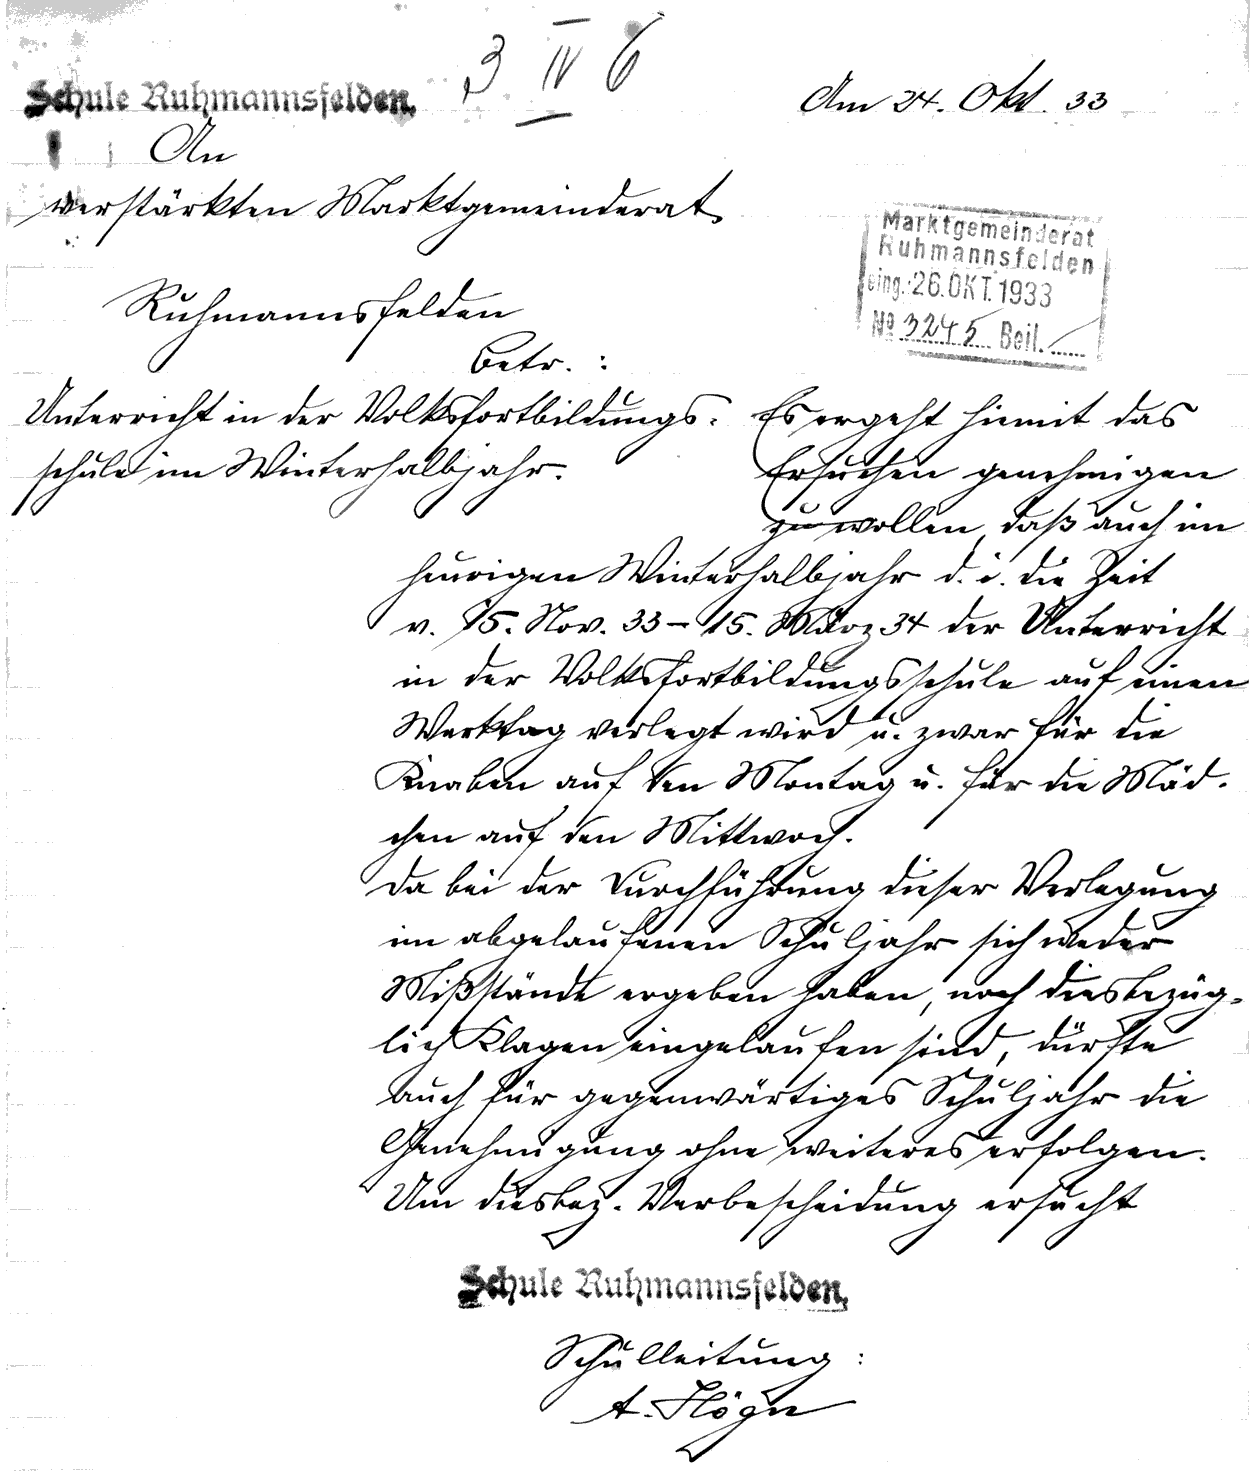 3 IV 6
Schule Ruhmannsfelden.
Am 24. Okt. 33
An
verstärkten Marktgemeinderat
Marktgemeinderat
Ruhmannsfelden
eing.: 26. OKT. 1933
No 3245 Beil.
Ruhmannsfelden
Betr. :
Unterricht in der Volksfortbildungs-
schule im Winterhalbjahr.
Es ergeht hiemit das
Ersuchen genehmigen
zu wollen, daß auch im
heurigen Winterhalbjahr d. i. die Zeit
v. 15. Nov. 33 – 15. März 34 der Unterricht
in der Volksfortbildungsschule auf einen
Werktag verlegt wird u. zwar für die
Knaben auf den Montag u. für die Mäd-
chen auf den Mittwoch.
Da bei der Durchführung dieser Verlegung
im abgelaufenen Schuljahr sich weder
Mißstände ergeben haben, noch diesbezüg-
lich Klagen eingelaufen sind, dürfte
auch für gegenwärtiges Schuljahr die
Genehmigung ohne weiteres erfolgen.
Um diesbez. Verbescheidung ersucht
Schule Ruhmannsfelden.
Schulleitung :
A. Högn